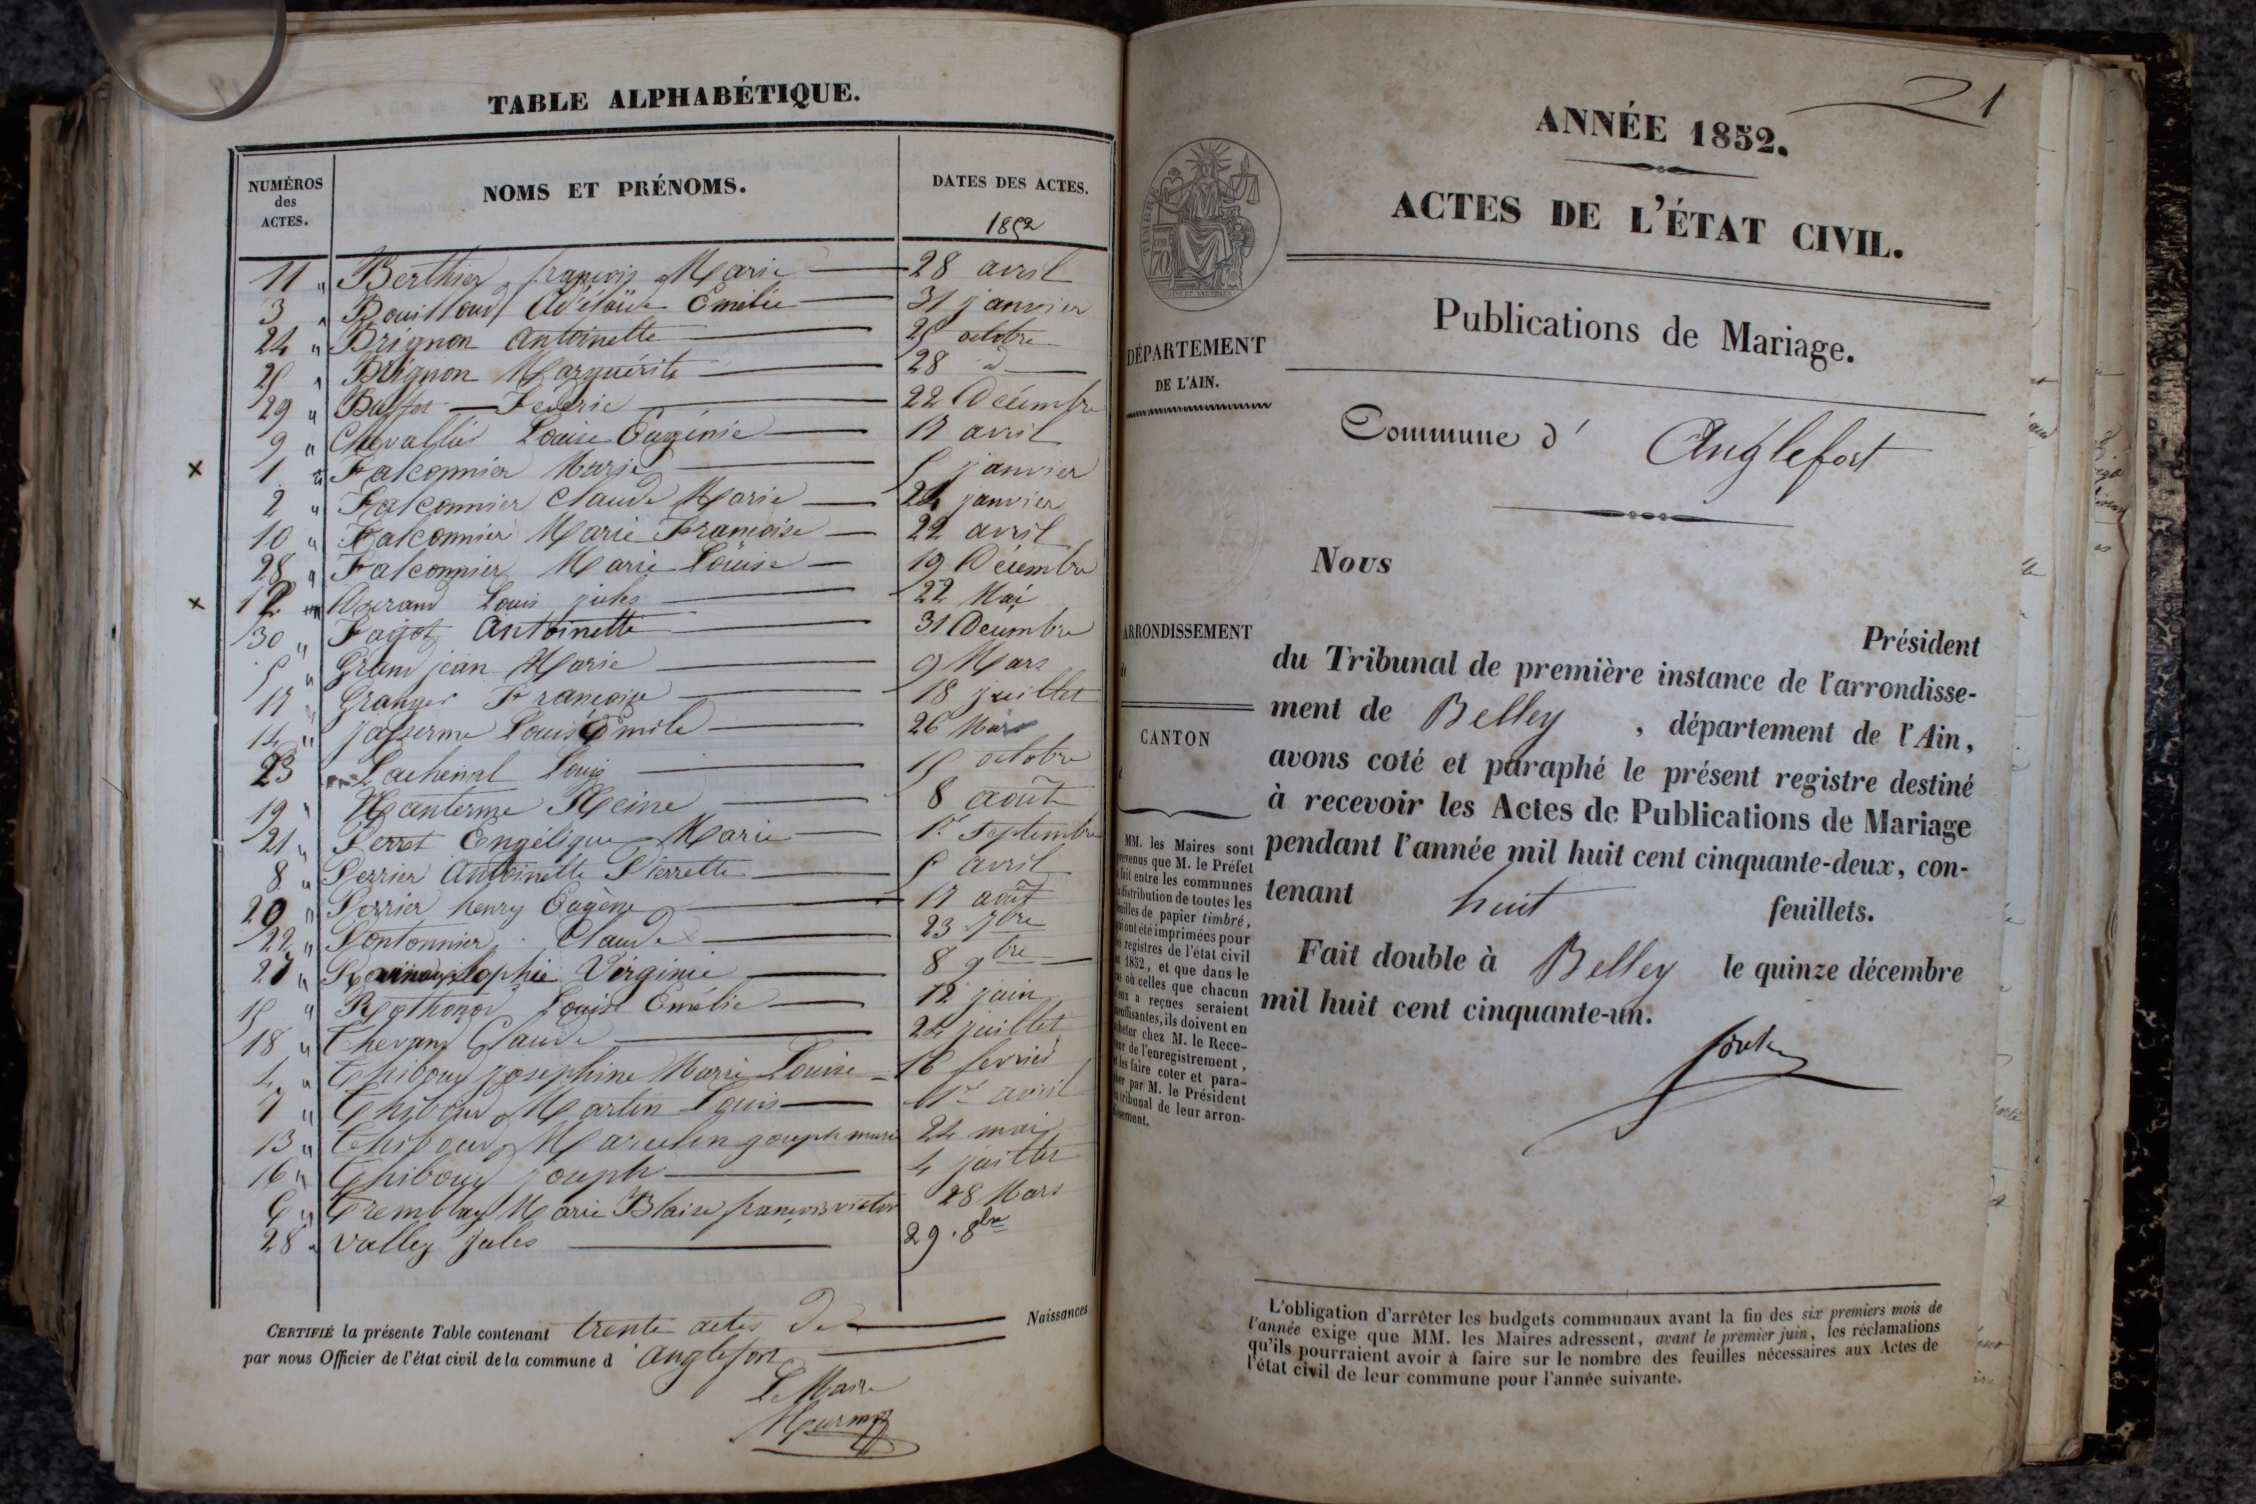 TABLE ALPHABÉTIQUE.
NUMÉROS des ACTES. NOMS ET PRÉNOMS. DATES DES ACTES.
1852
11 " Berthier françois Marie 28 avril
3 " Bouilloud Adélaïde Emilie 31 janvier
24 " Brignon Antoinette 25 octobre
25 " Brignon Marguérite 28 d
29 " 22 Décembre
9 " Chevallier Louise Eugénie 17 avril
x 1 " Falconnier Marie 5 janvier
2 " Falconnier Claude Marie 24 janvier
10 " Falconnier Marie Françoise 22 avril
28 " Falconnier Marie Louise 19 Décembre
x 12 Louis jules 22 Mai
30 " Fagot Antoinette 31 Décembre
5 " Grandjean Marie 9 Mars
17 " Granger Françoise 18 juillet
14 " Louis Emile 26
23 Lachenal Louis 15 octobre
19 " Reine 8 août
21 " Perret Engélique Marie 1er Septembre
8 " Perrier Antoinette Pierrette 5 avril
20 " Perrier henry Eugène 17 août
22 " Pontonnier Claude 23 7bre
27 " Sophie Virginie 8 9bre
15 " Louise Emélie 12 juin
18 " Claude 24 juillet
4 " Thiboud Joséphine Marie Louise 16 fevrier
7 " Thiboud Martin Louis 1er avril
13 " Thiboud Marcelin joseph marie 24 mai
16 " Thiboud joseph 4 juillet
6 " Tremblay Marie Blaise françois victor 28 Mars
28 " Valley Jules 29 8bre
CERTIFIÉ la présente Table contenant trente actes De Naissances
par nous Officier de l'état civil de la commune d'Anglefort
Le Maire
21
ANNÉE 1852.
ACTES DE L'ÉTAT CIVIL.
Publications de Mariage.
TIMBRE
70
DÉPARTEMENT
DE L'AIN.
Commune d' Anglefort
ARRONDISSEMENT
CANTON
Nous
Président
du Tribunal de première instance de l'arrondisse-
ment de Belley, département de l'Ain,
avons coté et paraphé le présent registre destiné
à recevoir les Actes de Publications de Mariage
pendant l'année mil huit cent cinquante-deux, con-
tenant huit feuillets.
Fait double à Belley le quinze décembre
mil huit cent cinquante-un.
MM. les Maires sont
prévenus que M. le Préfet
a fait entre les communes
la distribution de toutes les
feuilles de papier timbré,
qui ont été imprimées pour
les registres de l'état civil
en 1852, et que dans le
cas où celles que chacun
d'eux a reçues seraient
insuffisantes, ils doivent en
acheter chez M. le Rece-
veur de l'enregistrement,
et les faire coter et para-
pher par M. le Président
du tribunal de leur arron-
dissement.
L'obligation d'arrêter les budgets communaux avant la fin des six premiers mois de
l'année exige que MM. les Maires adressent, avant le premier juin, les réclamations
qu'ils pourraient avoir à faire sur le nombre des feuilles nécessaires aux Actes de
l'état civil de leur commune pour l'année suivante.